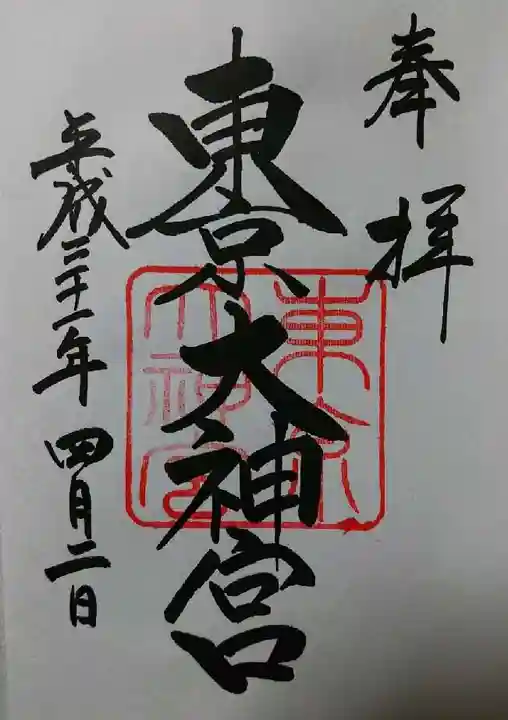 奉拝
東京大神宮
東京
大神宮
平成三十一年四月二日